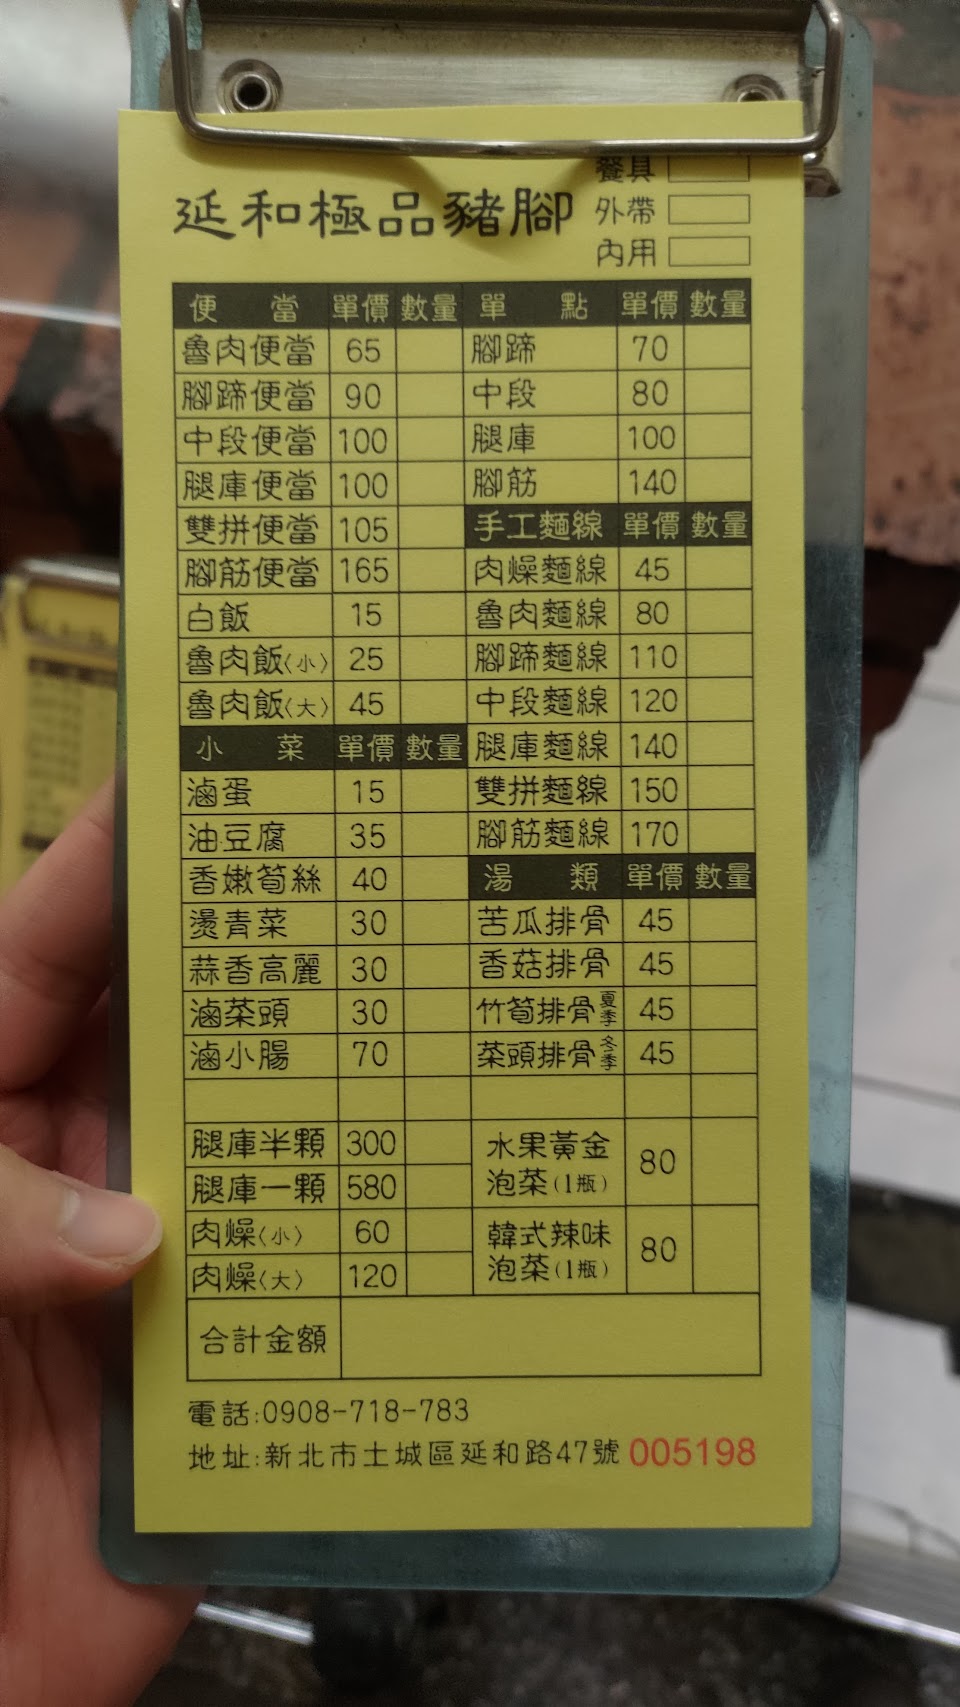 餐具
延和極品豬腳
外帶
內用
便當 單價 數量 單點 單價 數量
魯肉便當 65 腳蹄 70
腳蹄便當 90 中段 80
中段便當 100 腿庫 100
腿庫便當 100 腳筋 140
雙拼便當 105 手工麵線 單價 數量
腳筋便當 165 肉燥麵線 45
白飯 15 魯肉麵線 80
魯肉飯(小) 25 腳蹄麵線 110
魯肉飯(大) 45 中段麵線 120
小菜 單價 數量 腿庫麵線 140
滷蛋 15 雙拼麵線 150
油豆腐 35 腳筋麵線 170
香嫩筍絲 40 湯類 單價 數量
燙青菜 30 苦瓜排骨 45
蒜香高麗 30 香菇排骨 45
滷菜頭 30 竹筍排骨夏季 45
滷小腸 70 菜頭排骨冬季 45
腿庫半顆 300 水果黃金
腿庫一顆 580 泡菜(1瓶) 80
肉燥(小) 60 韓式辣味
肉燥(大) 120 泡菜(1瓶) 80
合計金額
電話:0908-718-783
地址:新北市土城區延和路47號 005198